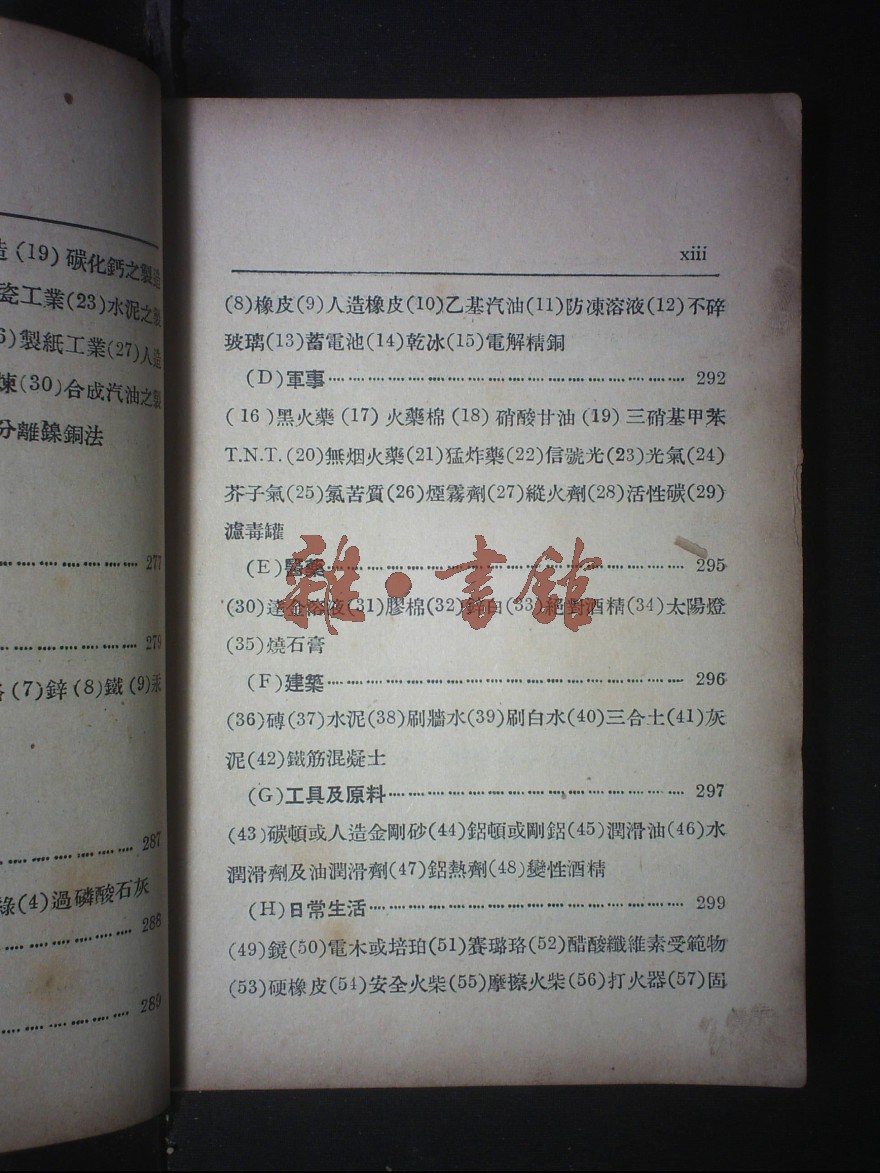 造(19)碳化鈣之製造
瓷工業(23)水泥之製
6)製紙工業(27)人造
煉(30)合成汽油之製
分離鎳銅法
277
279
(7)鋅(8)鐵(9)汞
287
綠(4)過磷酸石灰
288
289
xiii
(8)橡皮(9)人造橡皮(10)乙基汽油(11)防凍溶液(12)不碎
玻璃(13)蓄電池(14)乾冰(15)電解精銅
(D)軍事 292
(16)黑火藥(17)火藥棉(18)硝酸甘油(19)三硝基甲苯
T.N.T.(20)無烟火藥(21)猛炸藥(22)信號光(23)光氣(24)
芥子氣(25)氯苦質(26)煙霧劑(27)縱火劑(28)活性碳(29)
濾毒罐
(E)醫藥 295
(30)達金溶液(31)膠棉(32)鋅白(33)絕對酒精(34)太陽燈
(35)燒石膏
(F)建築 296
(36)磚(37)水泥(38)刷牆水(39)刷白水(40)三合土(41)灰
泥(42)鐵筋混凝土
(G)工具及原料 297
(43)碳頓或人造金剛砂(44)鋁頓或剛鋁(45)潤滑油(46)水
潤滑劑及油潤滑劑(47)鋁熱劑(48)變性酒精
(H)日常生活 299
(49)鏡(50)電木或培珀(51)賽璐珞(52)醋酸纖維素受範物
(53)硬橡皮(54)安全火柴(55)摩擦火柴(56)打火器(57)固
雜·書館